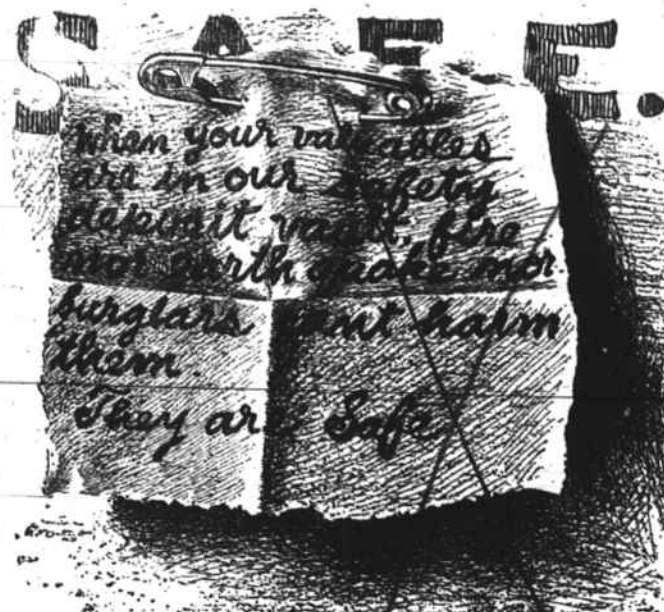 SAFE.
When your valuables
are in our Safety
deposit vault, fire
nor earth quake nor
burglars cant harm
them.
They are Safe.